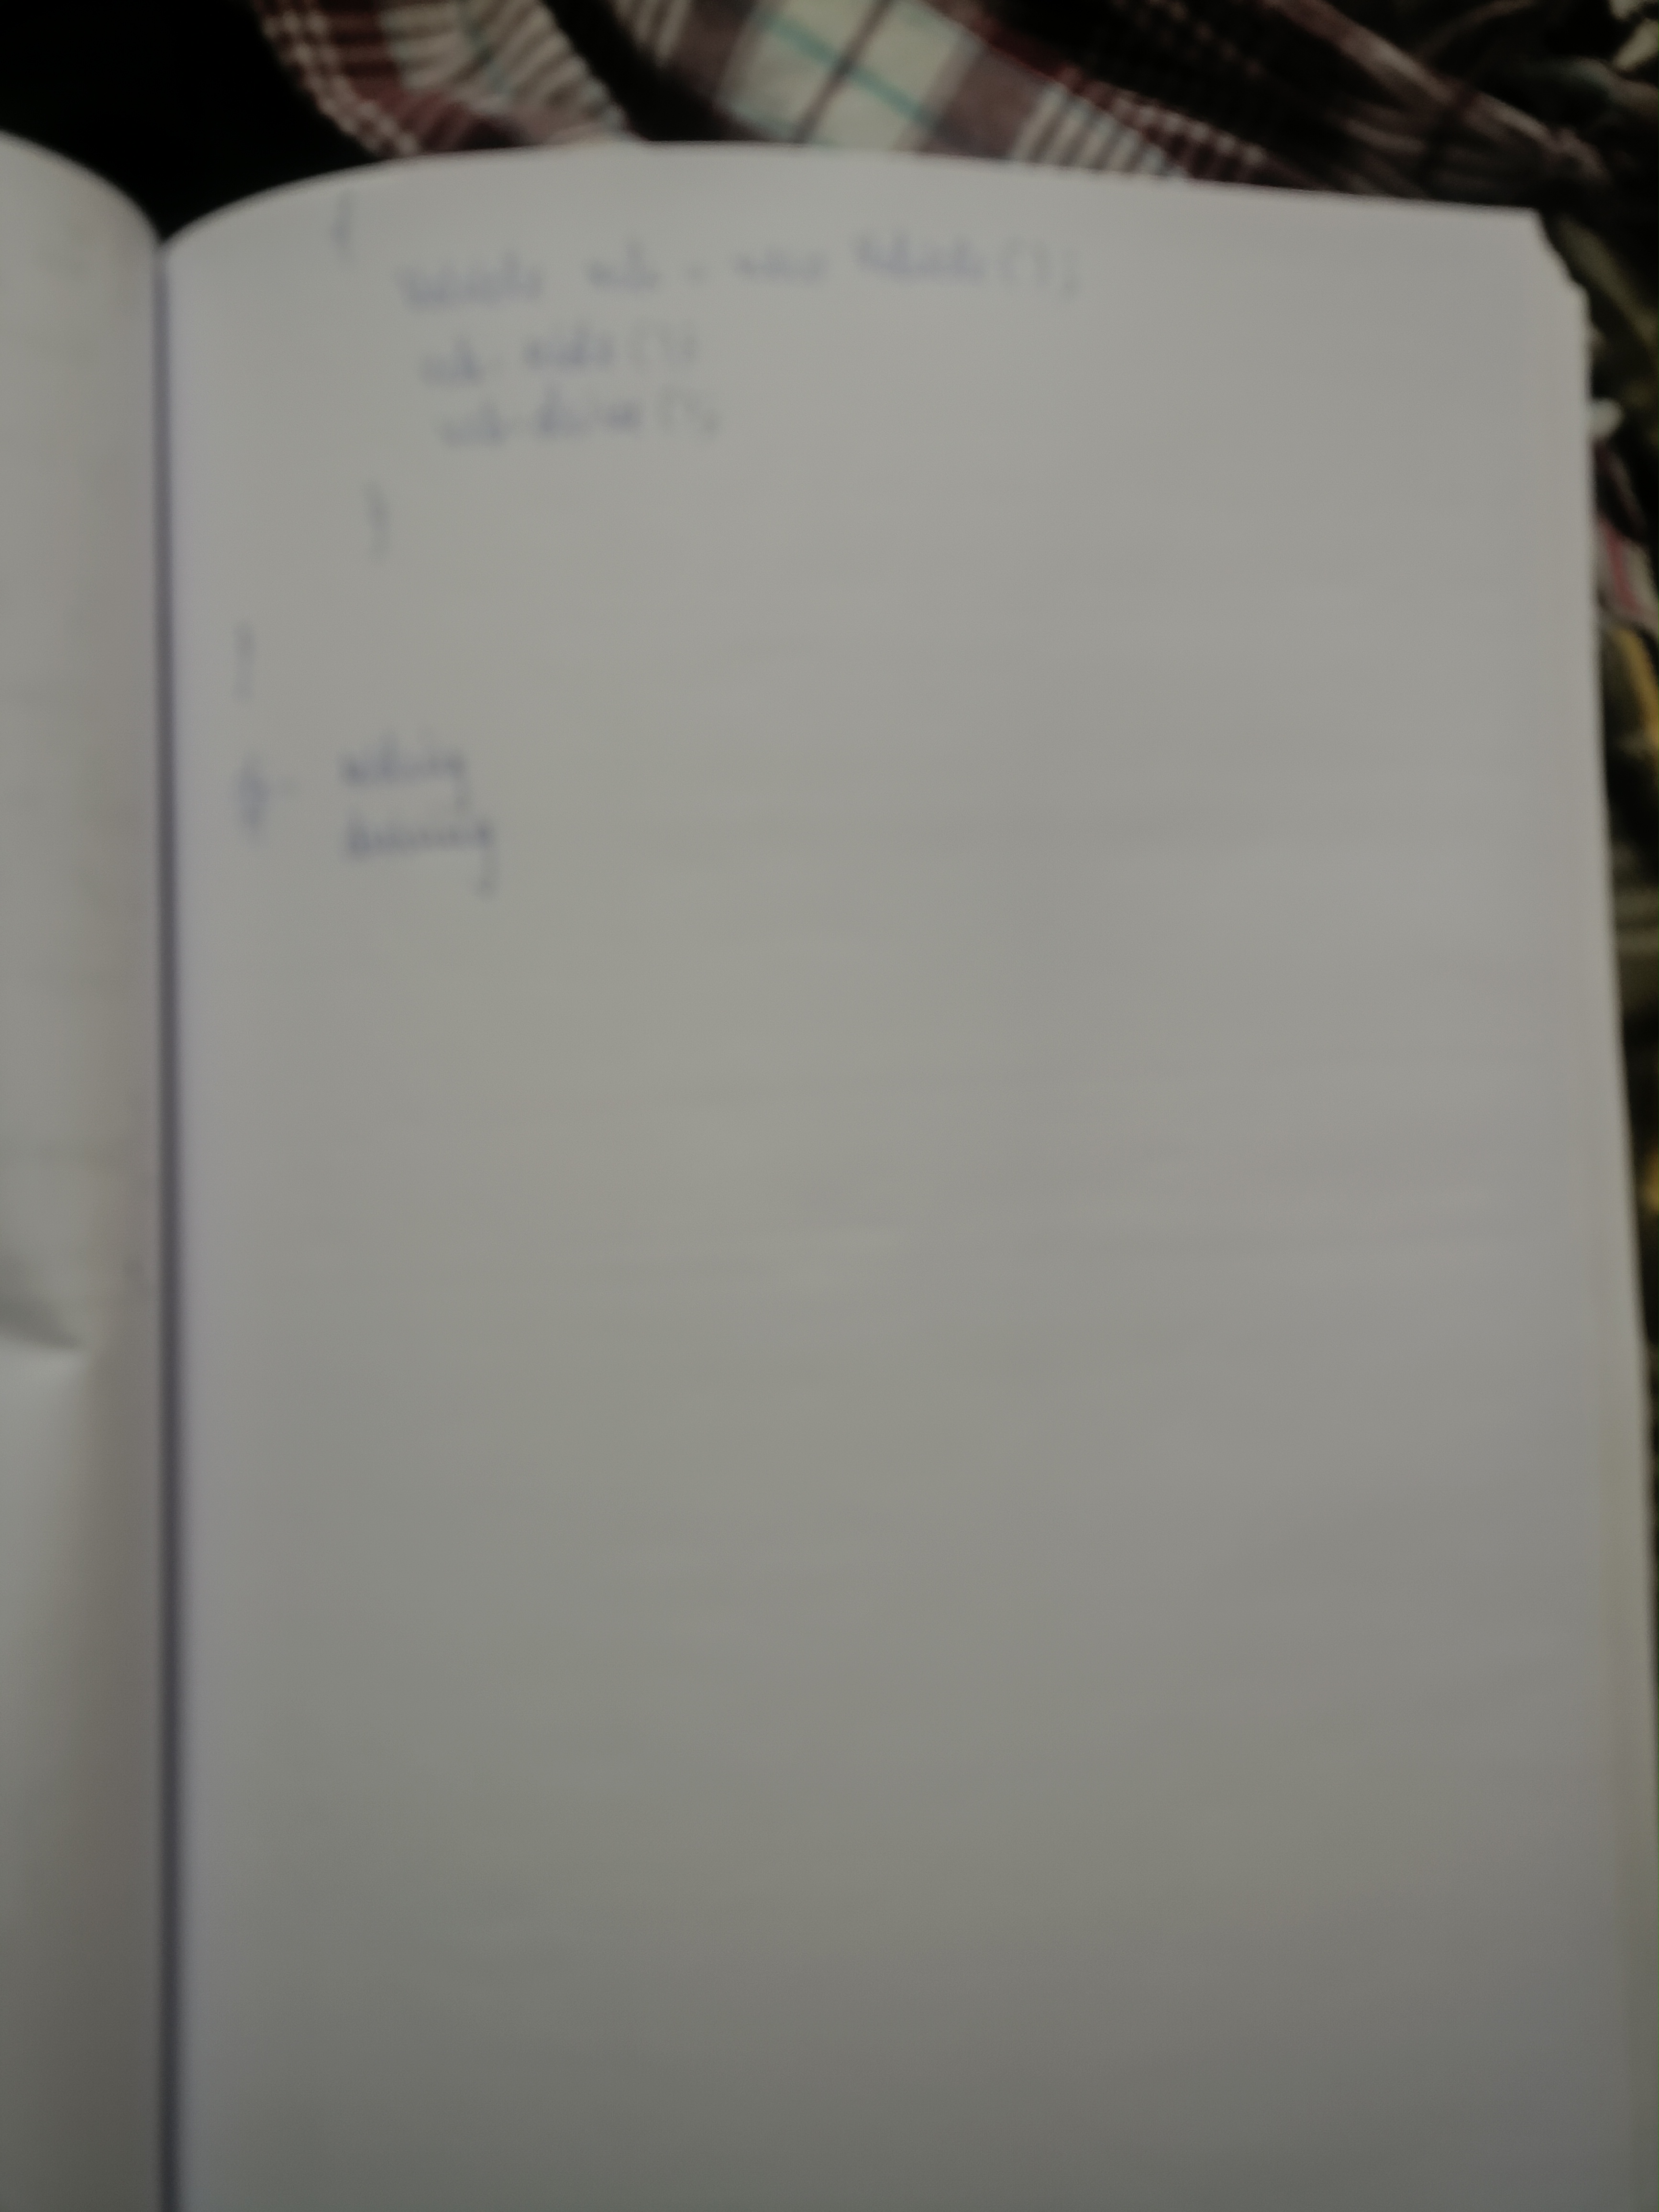 {
Vehicle veh = new Vehicle();
veh. ride();
veh.drive();
}
}
riding
driving